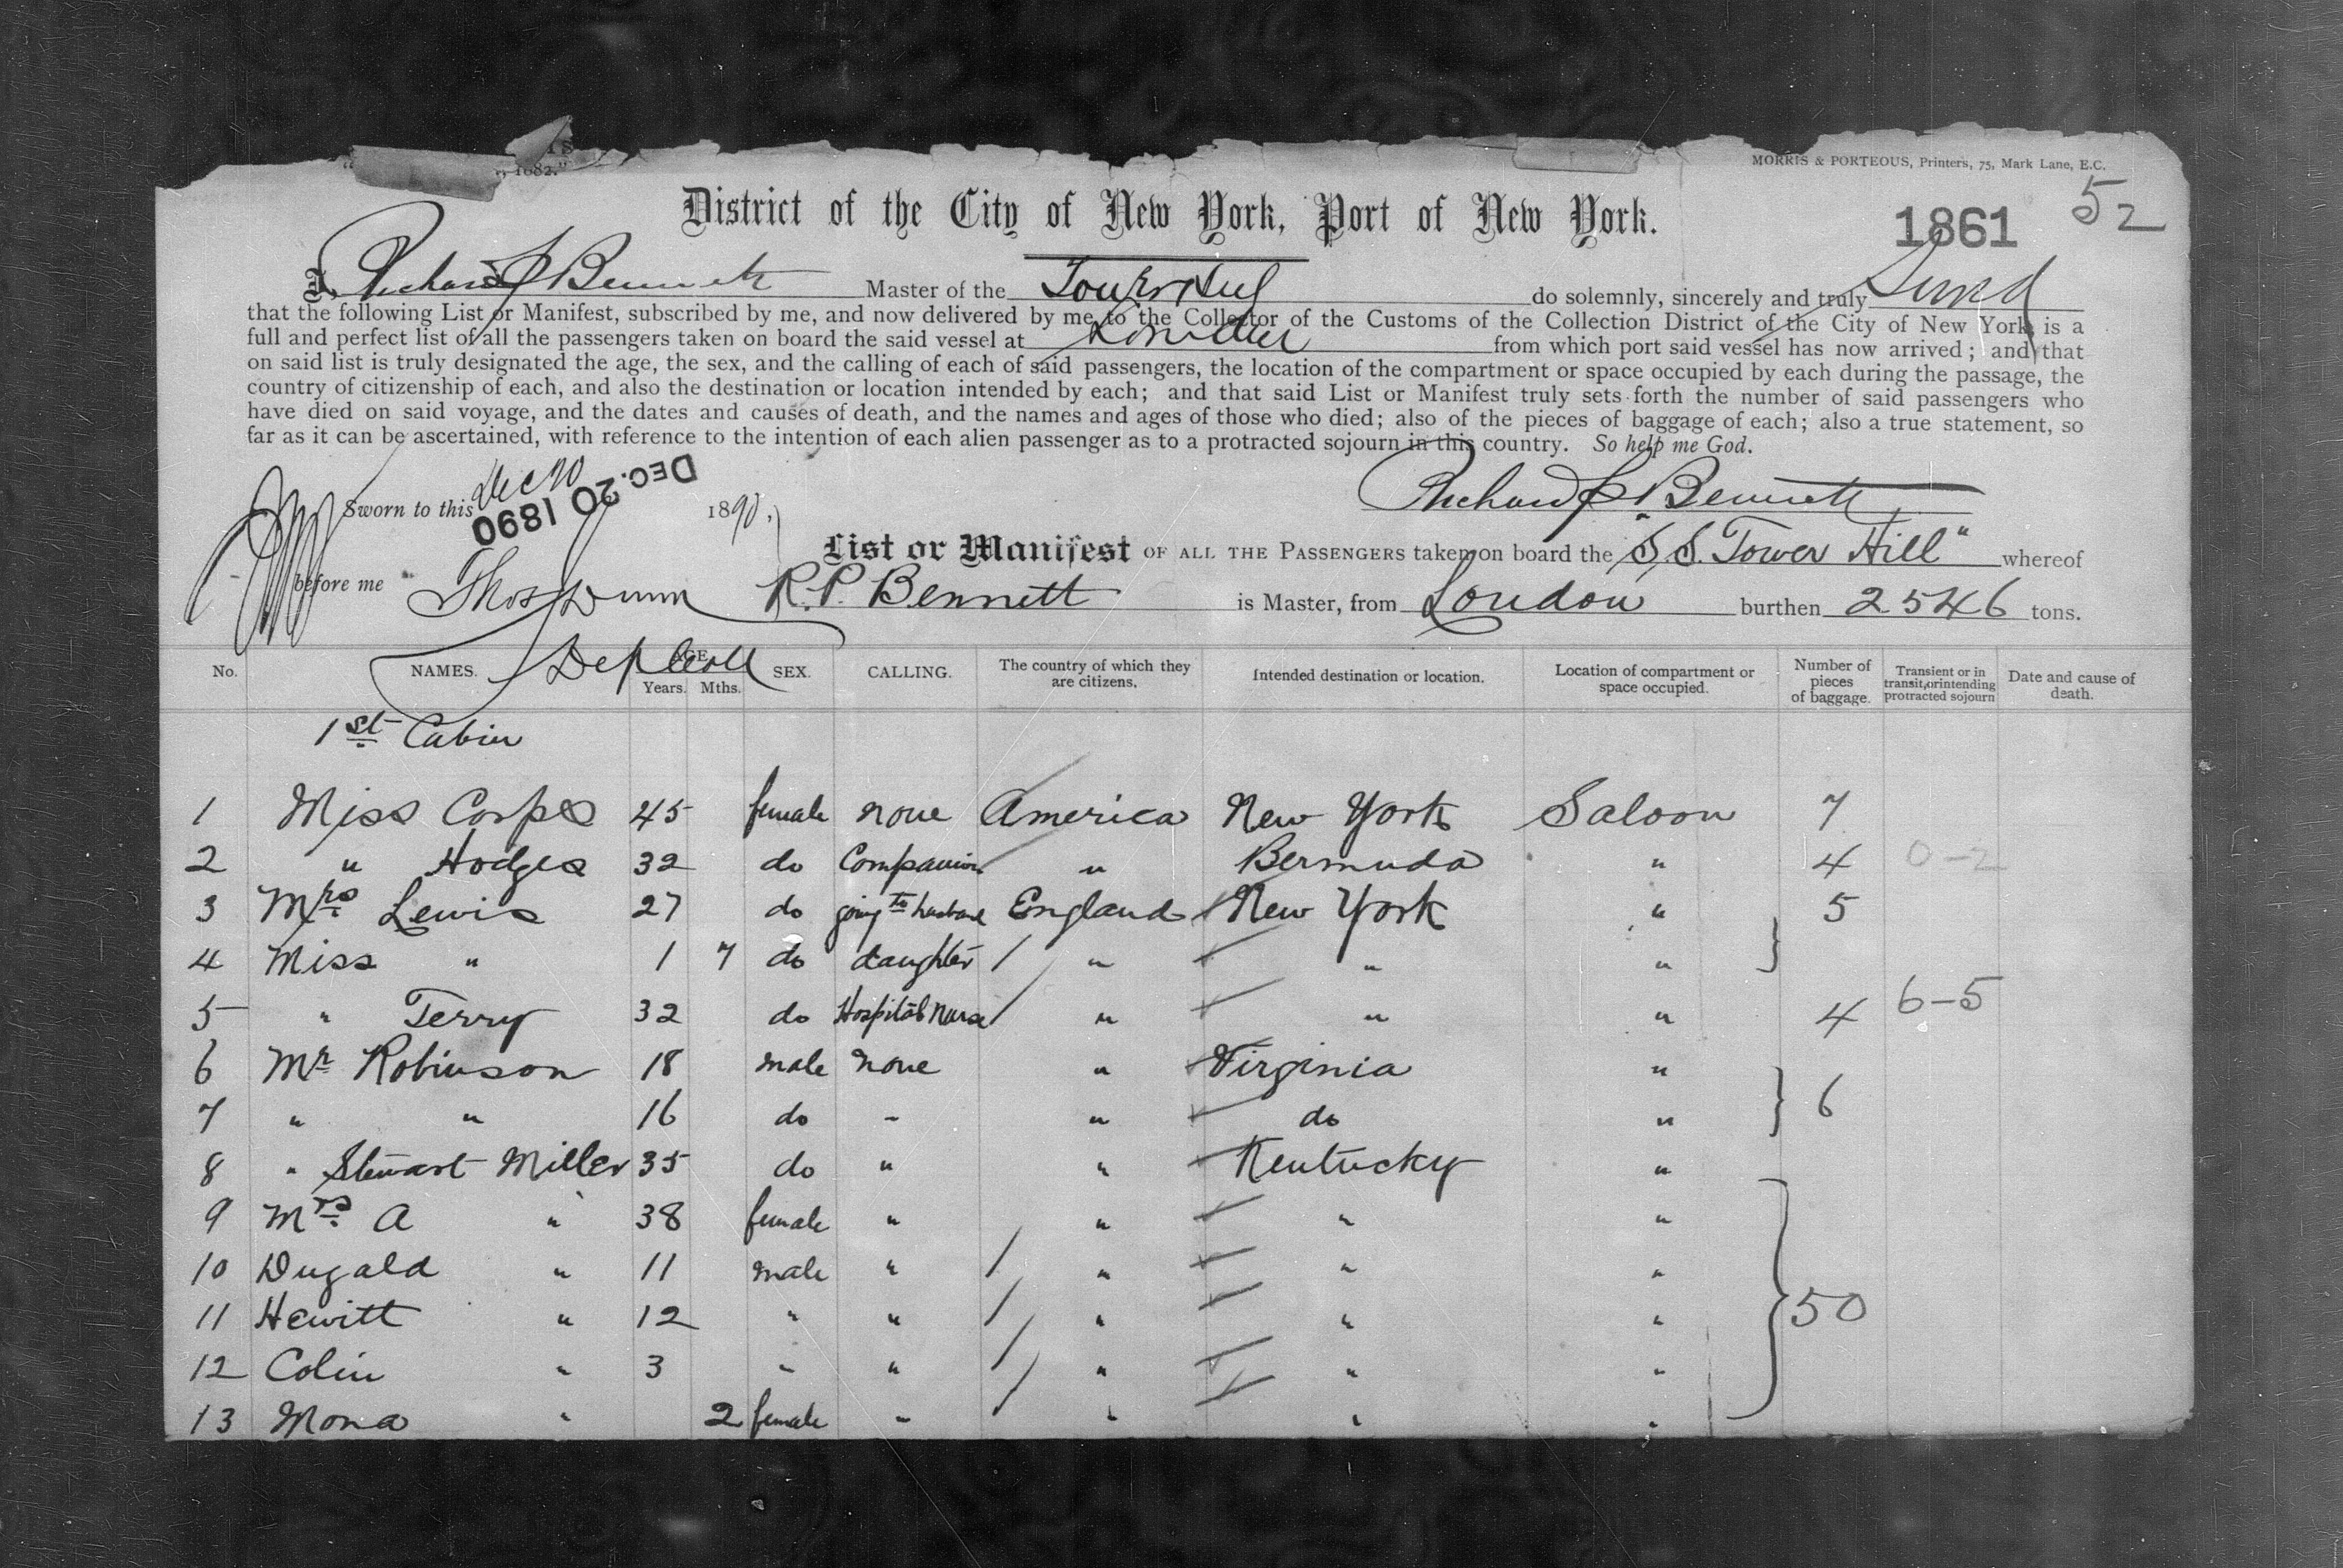 , 1882."
MORRIS & PORTEOUS, Printers, 75, Mark Lane, E.C.
52
District of the City of New York, Port of New York.
1861
I, Richard P Bennett Master of the Tower Hill do solemnly, sincerely and truly
that the following List or Manifest, subscribed by me, and now delivered by me to the Collector of the Customs of the Collection District of the City of New York is a
full and perfect list of all the passengers taken on board the said vessel at London from which port said vessel has now arrived; and that
on said list is truly designated the age, the sex, and the calling of each of said passengers, the location of the compartment or space occupied by each during the passage, the
country of citizenship of each, and also the destination or location intended by each; and that said List or Manifest truly sets forth the number of said passengers who
have died on said voyage, and the dates and causes of death, and the names and ages of those who died; also of the pieces of baggage of each; also a true statement, so
far as it can be ascertained, with reference to the intention of each alien passenger as to a protracted sojourn in this country. So help me God.
Sworn to this Dec 20 1890,
DEC. 20 1890
Richard P. Bennett
List or Manifest OF ALL THE PASSENGERS taken on board the S.S. "Tower Hill" whereof
before me Thos Dunn R. P. Bennett is Master, from London burthen 2546 tons.
Dep Coll
No. NAMES. AGE Years. Mths. SEX. CALLING. The country of which they are citizens. Intended destination or location. Location of compartment or space occupied. Number of pieces of baggage. Transient or in transit, or intending protracted sojourn Date and cause of death.
1st Cabin
1 Miss Corpes 45 female none America New York Saloon 7
2 " Hodges 32 do Companion " Bermuda " 4 0-2
3 Mrs Lewis 27 do going to husband England New York " 5
4 Miss " 1 7 do daughter " " "
5 " Terry 32 do Hospital Nurse " " " 4 6-5
6 Mr Robinson 18 male none " Virginia "
7 " " 16 do " " do " 6
8 " Stewart Miller 35 do " " Kentucky "
9 Mrs A " 38 female " " " "
10 Dugald " 11 male " " " "
11 Hewitt " 12 " " " " " 50
12 Colin " 3 " " " " "
13 Mona " 2 female " " " "